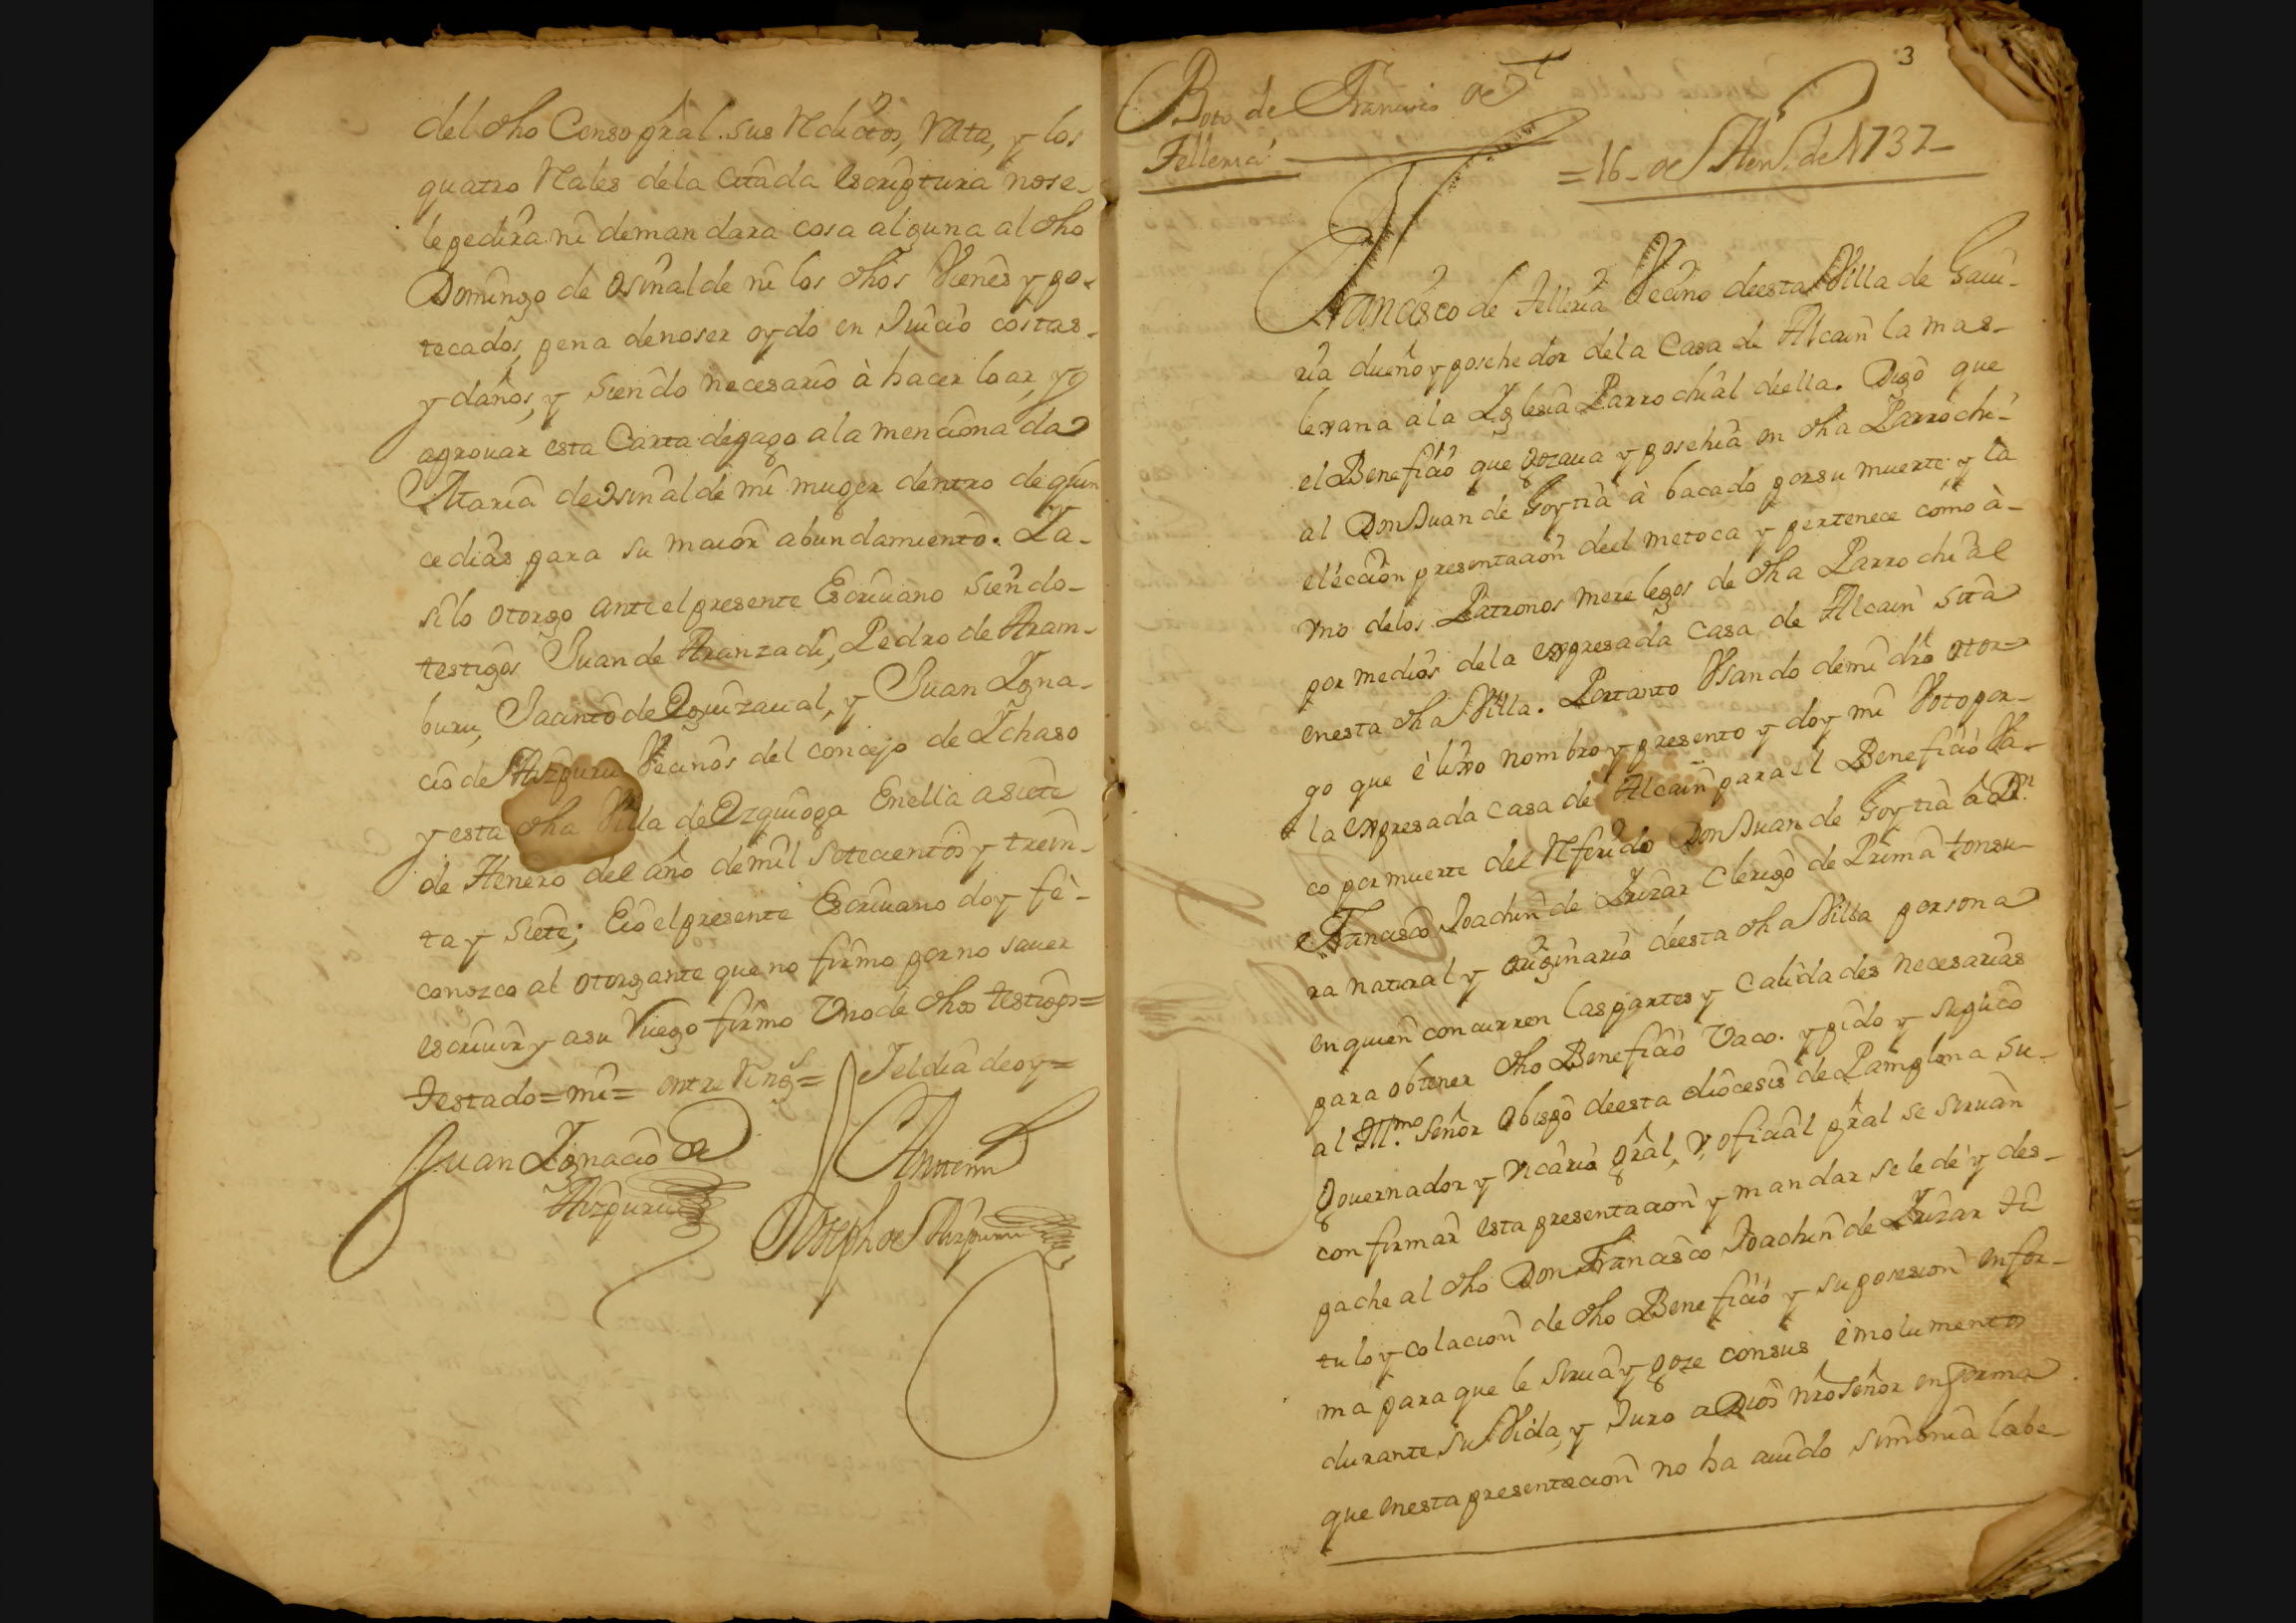 del dho Censo pral. sus Reditos, Rata, y los
quatro Reales dela Citada escriptura nose-
lepedira ni demandara cosa alguna al dho
Domingo de Osinalde ni los dhos Vienes ypo-
tecados, pena denoser oydo en Juicio costas-
y daños, y siendo necesario à hacer loar, y
aprouar esta Carta depago ala mencionada
Maria de Osinalde mi muger dentro dequin
cedias para su maior abundamiento. Ya-
silo otorgo ante el presente Escriuano siendo-
testigos Juan de Aranzadi, Pedro de Aram-
buru, Jacinto de Eguizaual, y Juan Igna-
cio de Aizpuru Vecinos del concejo de Ichaso
y esta dha Villa de Ezquioga Enella asiete
de Henero del año demil setecientos y trein-
ta y siete; Eio el presente Escriuano doy fè-
conozco al otorgante que no firmo por no sauer
escriuir y asu Ruego firmo Uno de dhos testigos=
Testado=mi= entre Rings= Jeldia deoy=
Juan Ignacio de
Aizpuru
Antemi
Joseph de Aizpuru
3
Boto de Francisco de
Telleria
=16- de Hen.º de 1737-
Francisco de Telleria Vecino deesta Villa de Gaui-
ria dueño y posehedor dela Casa de Alcain la mas-
lexana ala Iglesia Parrochial deella. Digo que
el Beneficio que gozaua y posehia en dha Parrochi-
al Don Juan de Goytia à bacado porsu muerte y la
elección presentacion deel metoca y pertenece cómo à-
Vno delos Patronos mere legos de dha Parrochial
por medios dela expresada Casa de Alcain sita
enesta dha Villa. Portanto Vsando demi dro otor-
go que èlixo nombro y presento y doy mi Votopor-
la expresada casa de Alcain para el Beneficio Va-
co por muerte del Referido Don Juan de Goytia à Dn.
Francisco Joachin de Irizar Clerigo de Prima tonsu-
ra natural y originario deesta dha Villa persona
enquien concurren laspartes y calidades necesarias
para obtener dho Beneficio Vaco. y pido y suplico
al Illmo. Señor Obispo deesta diocesis de Pamplona su-
Gouernador y Vicario Gral, y oficial pral se siruan
confirmar esta presentacion y mandar sele de y des-
pache al dho Don Francisco Joachin de Irizar ti
tulo y colacion de dho Beneficio y su posesion enfor-
ma para que le sirua y goze consus èmolumentos
durante su Vida, y Juro a Dios nro Señor enforma
que enesta presentacion no ha auido simonia labe-